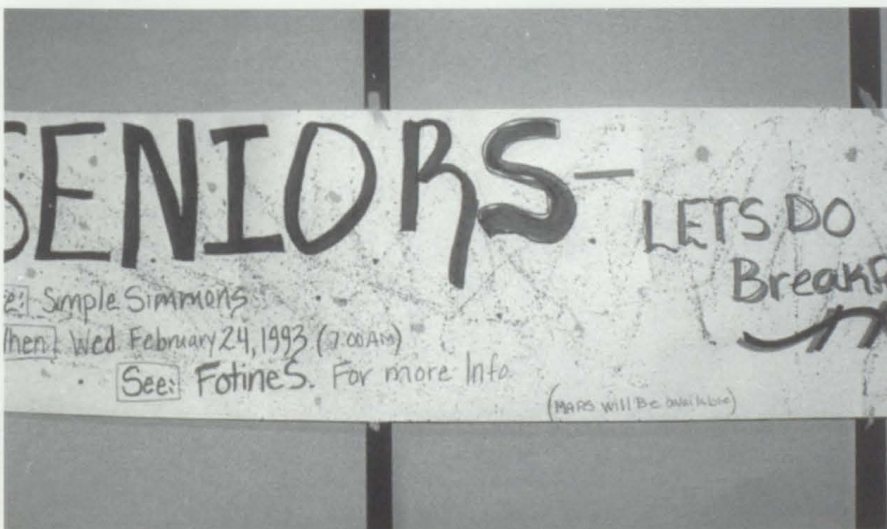 SENIORS-
LETS DO
Breakf
e: Simple Simmons
hen: Wed. February 24, 1993 (7:00 AM)
See: Fotine S. For more Info.
(MAPS will Be available)